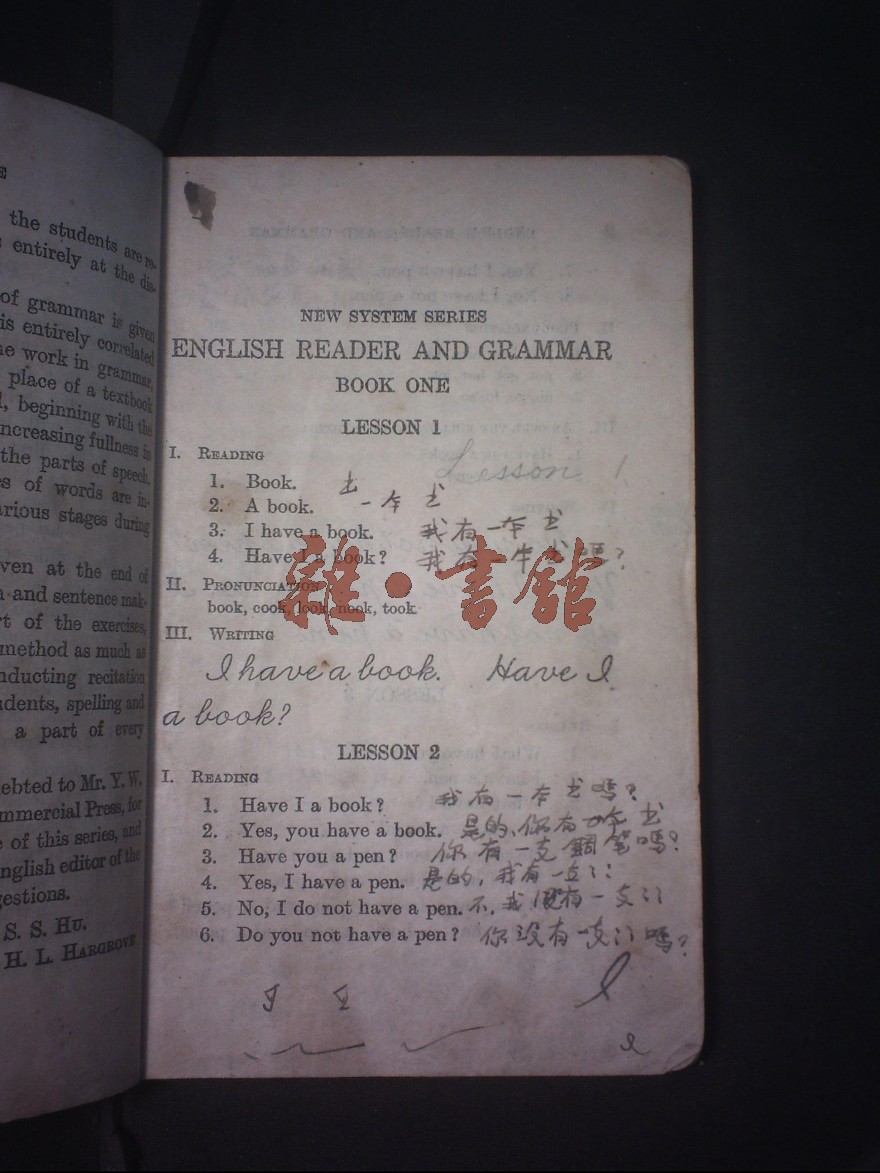 E
the students are re-
entirely at the dis-
of grammar is given
is entirely correlated
he work in grammar,
place of a textbook
l, beginning with the
ncreasing fullness in
the parts of speech.
s of words are in-
arious stages during
ven at the end of
n and sentence mak-
rt of the exercises,
method as much as
nducting recitation
udents, spelling and
a part of every
ebted to Mr. Y. W.
ommercial Press, for
e of this series, and
nglish editor of the
gestions.
S. S. HU.
H. L. HARGROVE
NEW SYSTEM SERIES
ENGLISH READER AND GRAMMAR
BOOK ONE
LESSON 1
I. READING
Lesson 1
1. Book. 书
2. A book. 一本书
3. I have a book. 我有一本书
4. Have I a book? 我有一本书嗎?
雜·書館
II. PRONUNCIATION
book, cook, look, nook, took
III. WRITING
I have a book. Have I
a book?
LESSON 2
I. READING
1. Have I a book? 我有一本书嗎?
2. Yes, you have a book. 是的、你有一本书
3. Have you a pen? 你有一支鋼笔嗎?
4. Yes, I have a pen. 是的,我有一支
5. No, I do not have a pen. 不,我沒有一支
6. Do you not have a pen? 你沒有一支嗎?